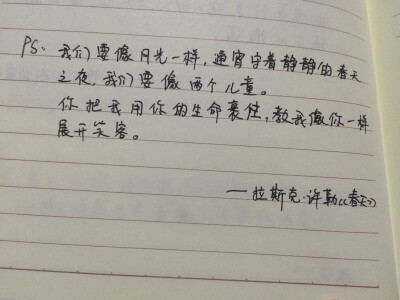 PS：我们要像月光一样，通宵守着静静的春天
之夜，我们要像两个儿童。
你把我用你的生命裹住，教我像你一样
展开笑容。
——拉斯克·许勒《春天》